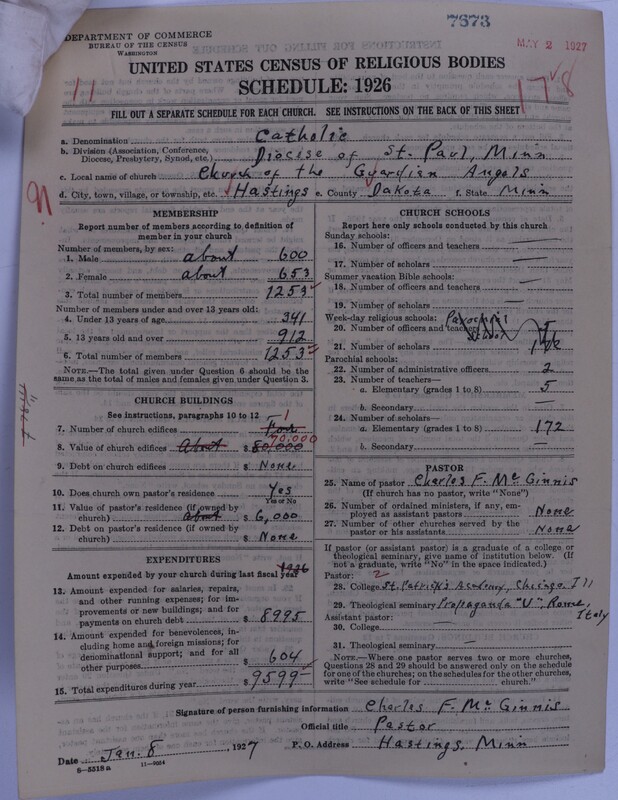 7673
DEPARTMENT OF COMMERCE
BUREAU OF THE CENSUS
WASHINGTON
MAY 2 1927
UNITED STATES CENSUS OF RELIGIOUS BODIES
SCHEDULE: 1926
11
178
FILL OUT A SEPARATE SCHEDULE FOR EACH CHURCH. SEE INSTRUCTIONS ON THE BACK OF THIS SHEET
a. Denomination Catholic
b. Division (Association, Conference, Diocese, Presbytery, Synod, etc.) Diocise of St. Paul, Minn
c. Local name of church Church of the Guardian Angels
d. City, town, village, or township, etc. Hastings e. County Dakota f. State Minn
MEMBERSHIP
Report number of members according to definition of
member in your church
Number of members, by sex:
1. Male about 600
2. Female about 653
3. Total number of members 1253
Number of members under and over 13 years old:
4. Under 13 years of age 341
5. 13 years old and over 912
6. Total number of members 1253
NOTE.—The total given under Question 6 should be
the same as the total of males and females given under Question 3.
CHURCH BUILDINGS
See instructions, paragraphs 10 to 12
7. Number of church edifices Four 1
70,000
8. Value of church edifices About $ 80,000
9. Debt on church edifices $ None
10. Does church own pastor's residence Yes
Yes or No
11. Value of pastor's residence (if owned by
church) About $ 6,000
12. Debt on pastor's residence (if owned by
church) $ None
EXPENDITURES
1926
Amount expended by your church during last fiscal year
13. Amount expended for salaries, repairs,
and other running expenses; for im-
provements or new buildings; and for
payments on church debt $ 8995
14. Amount expended for benevolences, in-
cluding home and foreign missions; for
denominational support; and for all
other purposes $ 604
15. Total expenditures during year $ 9599
CHURCH SCHOOLS
Report here only schools conducted by this church
Sunday schools:
16. Number of officers and teachers —
17. Number of scholars —
Summer vacation Bible schools:
18. Number of officers and teachers —
19. Number of scholars —
Week-day religious schools: Parochial
20. Number of officers and teachers School 5
21. Number of scholars 172
Parochial schools:
22. Number of administrative officers 2
23. Number of teachers—
a. Elementary (grades 1 to 8) 5
b. Secondary —
24. Number of scholars—
a. Elementary (grades 1 to 8) 172
b. Secondary —
PASTOR
25. Name of pastor Charles F. McGinnis
(If church has no pastor, write "None")
26. Number of ordained ministers, if any, em-
ployed as assistant pastors None
27. Number of other churches served by the
pastor or his assistants None
If pastor (or assistant pastor) is a graduate of a college or
theological seminary, give name of institution below. (If
not a graduate, write "No" in the space indicated.)
Pastor: 2
28. College St. Patrick's Academy, Chicago Ill
29. Theological seminary Propaganda "U", Rome, Italy
Assistant pastor:
30. College —
31. Theological seminary —
NOTE.—Where one pastor serves two or more churches,
Questions 28 and 29 should be answered only on the schedule
for one of the churches; on the schedules for the other churches,
write "See schedule for church."
Signature of person furnishing information Charles F. McGinnis
Official title Pastor
Date Jan. 8, 1927 P. O. Address Hastings, Minn
8—5518a 11—9064